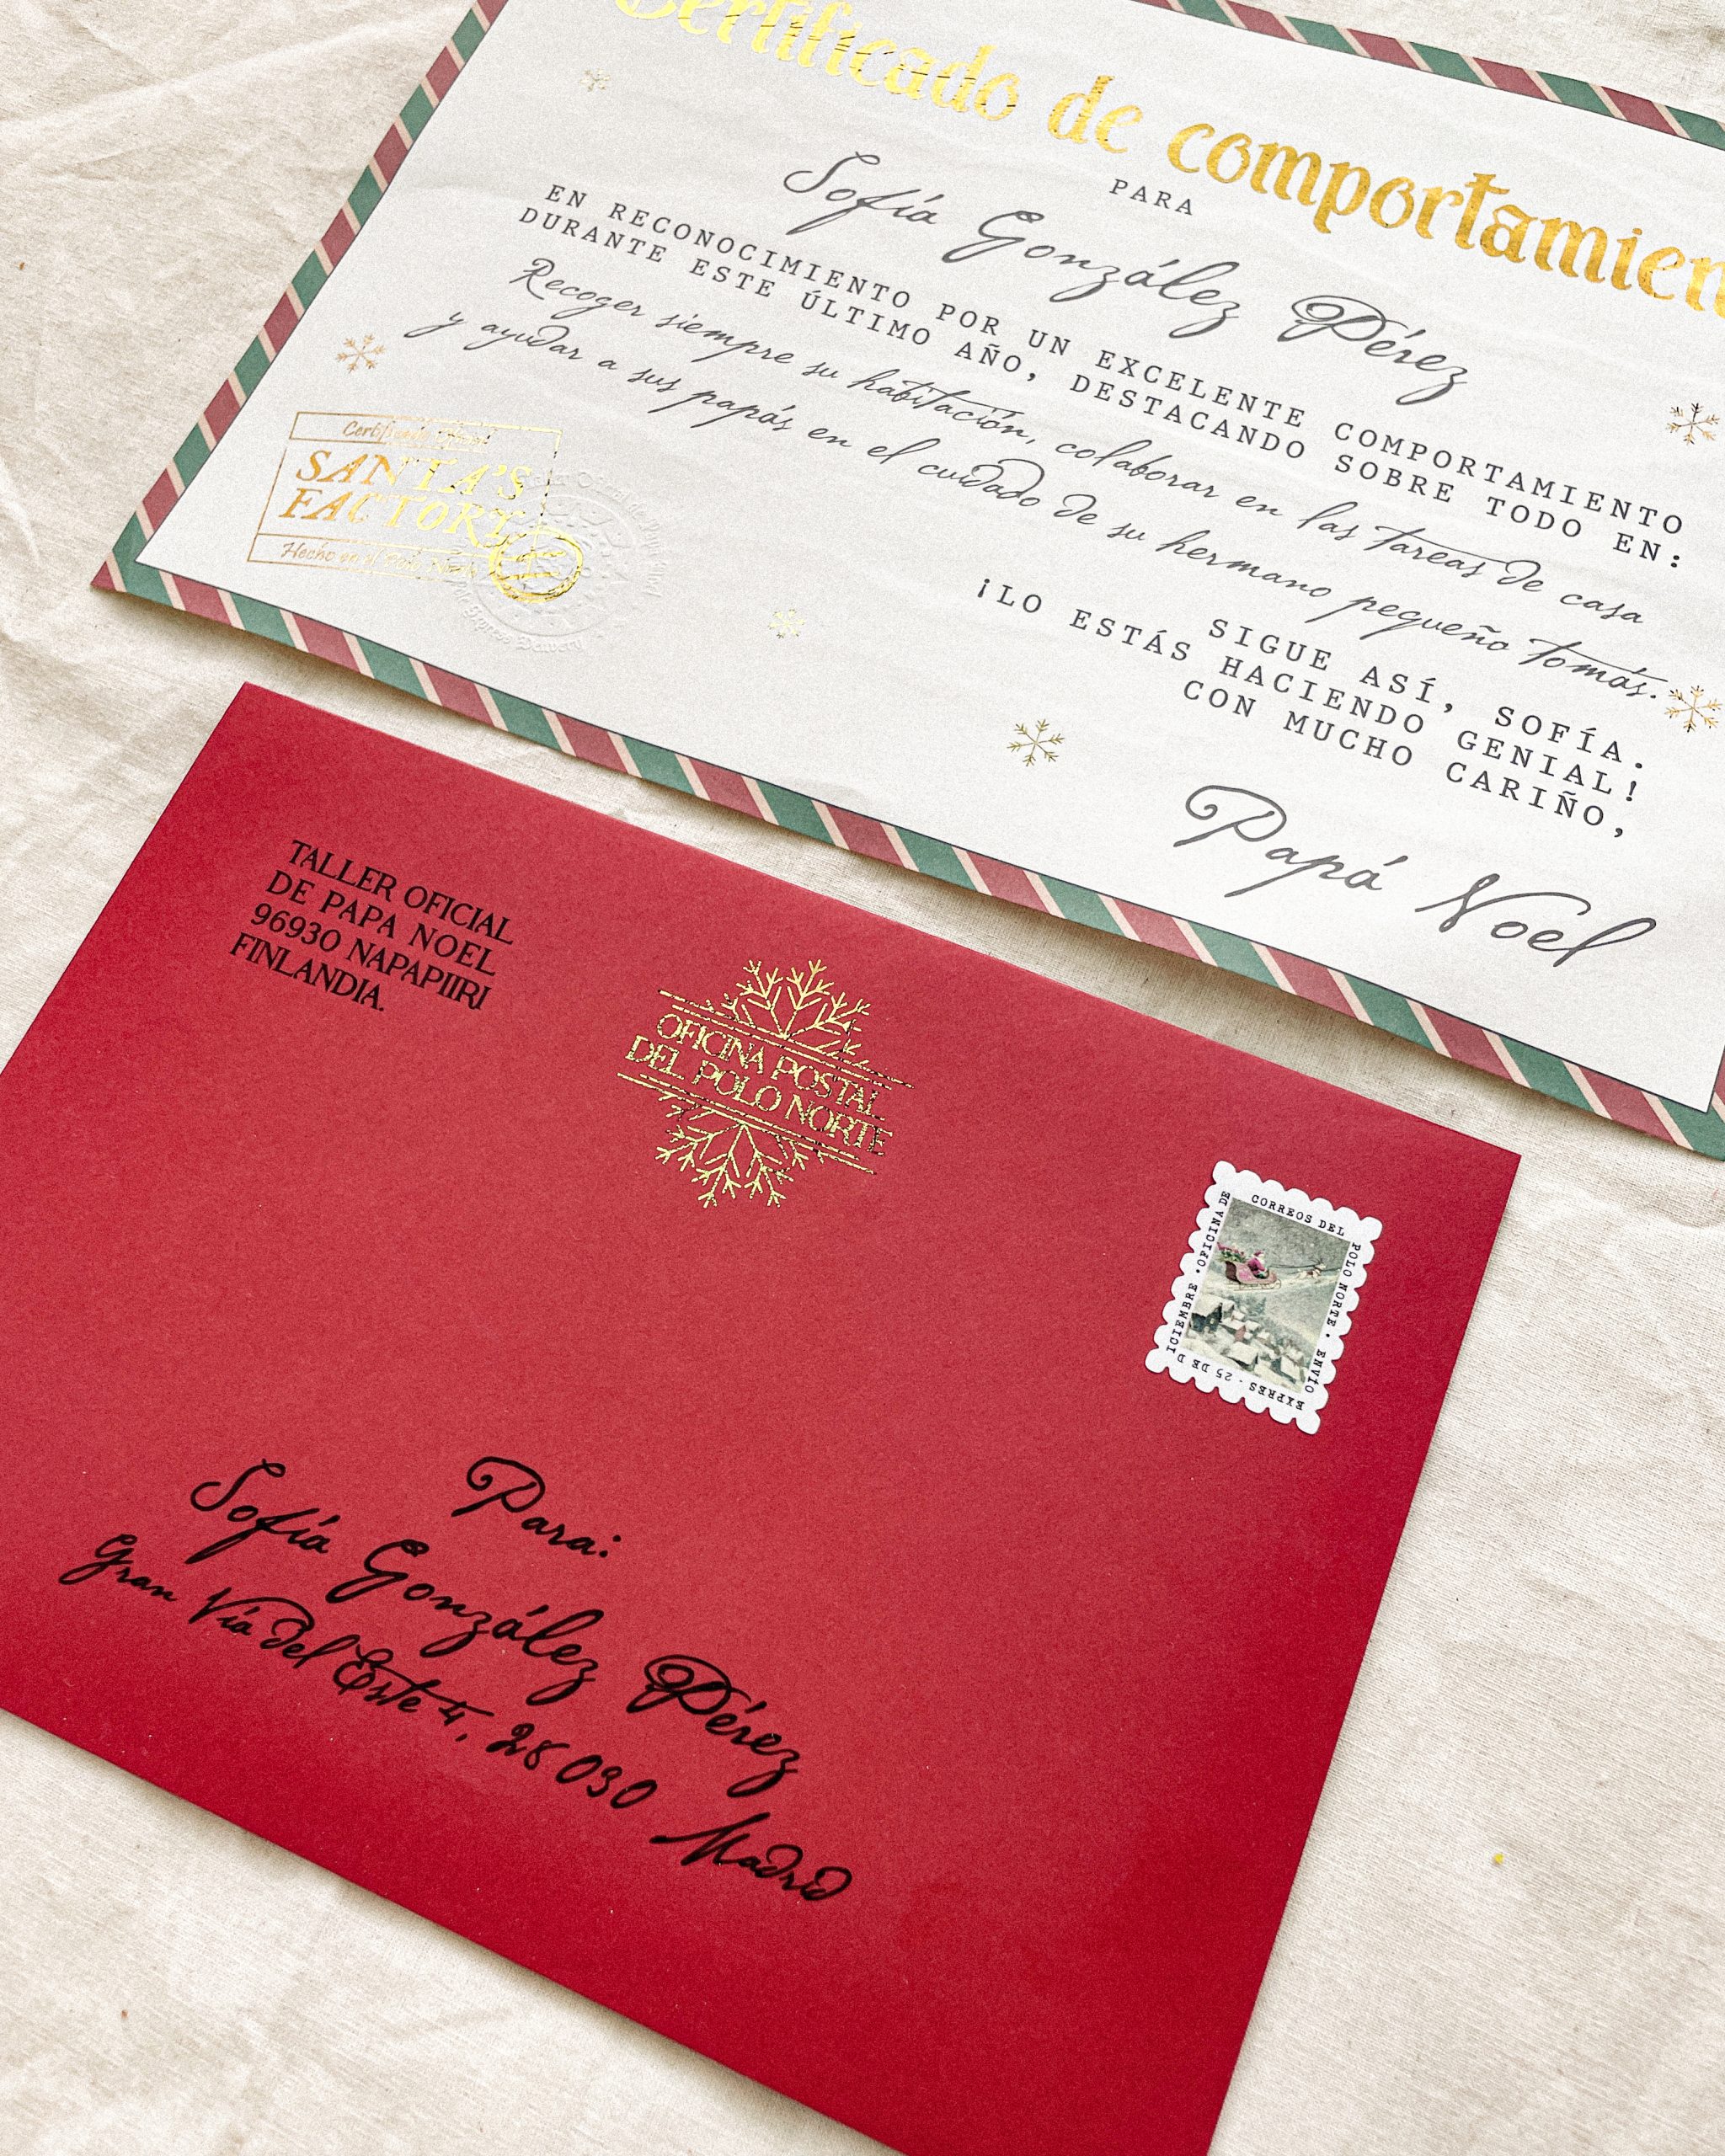 Certificado de comportamien
PARA
Sofía González Pérez
EN RECONOCIMIENTO POR UN EXCELENTE COMPORTAMIENTO
DURANTE ESTE ÚLTIMO AÑO, DESTACANDO SOBRE TODO EN:
Recoger siempre su habitación, colaborar en las tareas de casa
y ayudar a sus papás en el cuidado de su hermano pequeño Tomás.
SIGUE ASÍ, SOFÍA.
¡LO ESTÁS HACIENDO GENIAL!
CON MUCHO CARIÑO,
Papá Noel
Certificado Oficial
SANTA'S
FACTORY
Hecho en el Polo Norte
TALLER OFICIAL
DE PAPA NOEL
96930 NAPAPIIRI
FINLANDIA.
OFICINA POSTAL
DEL POLO NORTE
OFICINA DE CORREOS DEL POLO NORTE • ENVÍO EXPRES · 25 DE DICIEMBRE •
Para:
Sofía González Pérez
Gran Vía del Este 4, 28030 Madrid